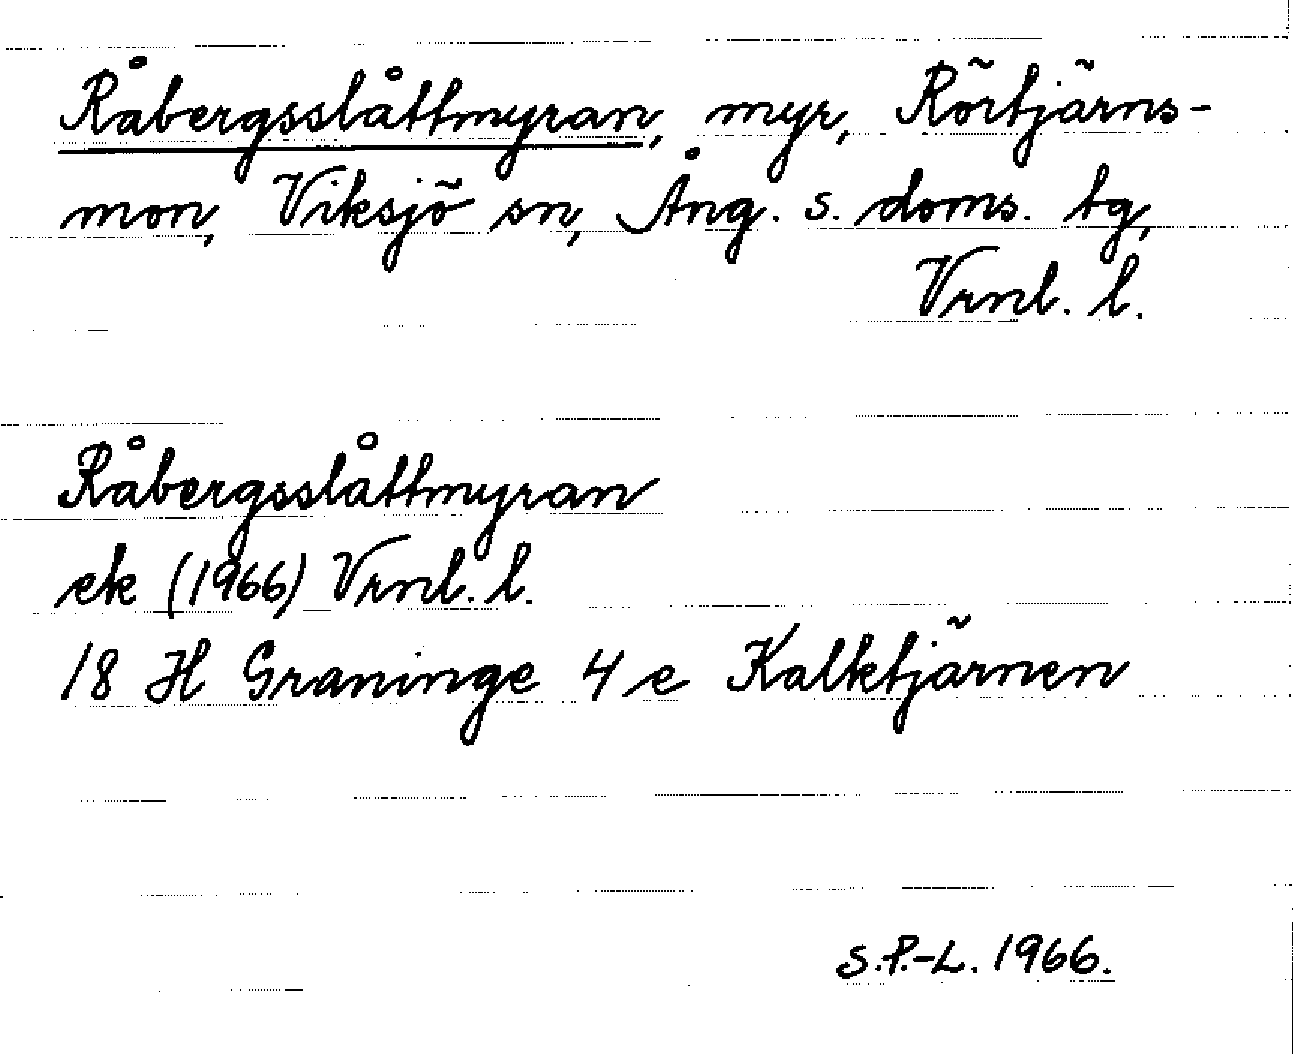 Råbergsslåttmyran, myr, Rörtjärns-
mon, Viksjö sn, Ång. s. doms. tg,
Vrnl. l.
Råbergsslåttmyran
ek (1966) Vrnl. l.
18 H Graninge 4 e Kalktjärnen
S.P.-L. 1966.